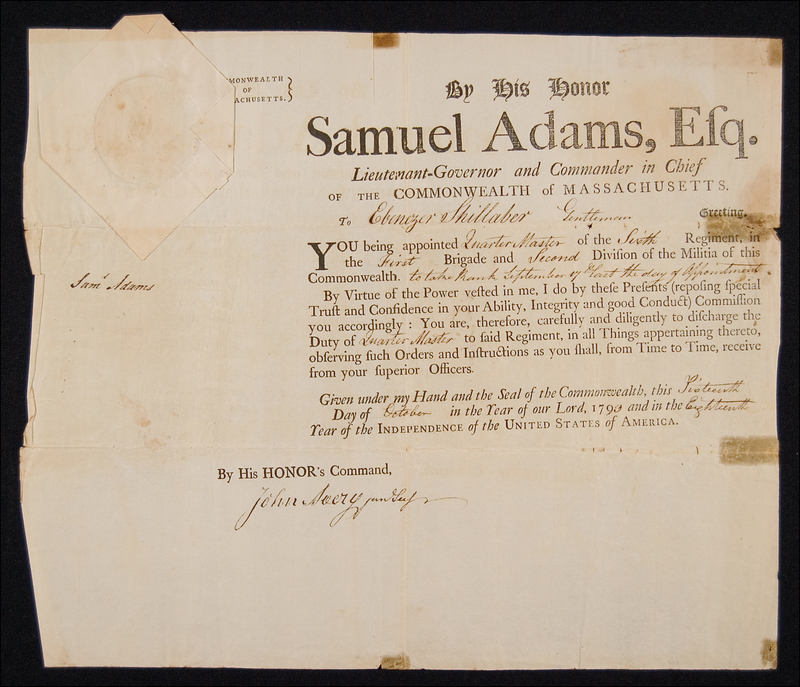 MONWEALTH
OF
ACHUSETTS.
By His Honor
Samuel Adams, Eſq.
Lieutenant-Governor and Commander in Chief
OF THE COMMONWEALTH of MASSACHUSETTS.
To Ebenezer Shillaber Gentleman Greeting.
YOU being appointed Quarter Master of the Sixth Regiment, in
the First Brigade and Second Diviſion of the Militia of this
Commonwealth. to take Rank September 17 last the day of Appointment
By Virtue of the Power veſted in me, I do by theſe Preſents (repoſing ſpecial
Truſt and Confidence in your Ability, Integrity and good Conduct) Commiſſion
you accordingly : You are, therefore, carefully and diligently to diſcharge the
Duty of Quarter Master to ſaid Regiment, in all Things appertaining thereto,
obſerving ſuch Orders and Inſtructions as you ſhall, from Time to Time, receive
from your ſuperior Officers.
Given under my Hand and the Seal of the Commonwealth, this Sixteenth
Day of October in the Year of our Lord, 1793 and in the Eighteenth
Year of the INDEPENDENCE of the UNITED STATES of AMERICA.
Saml Adams
By His HONOR's Command,
John Avery junr Secy